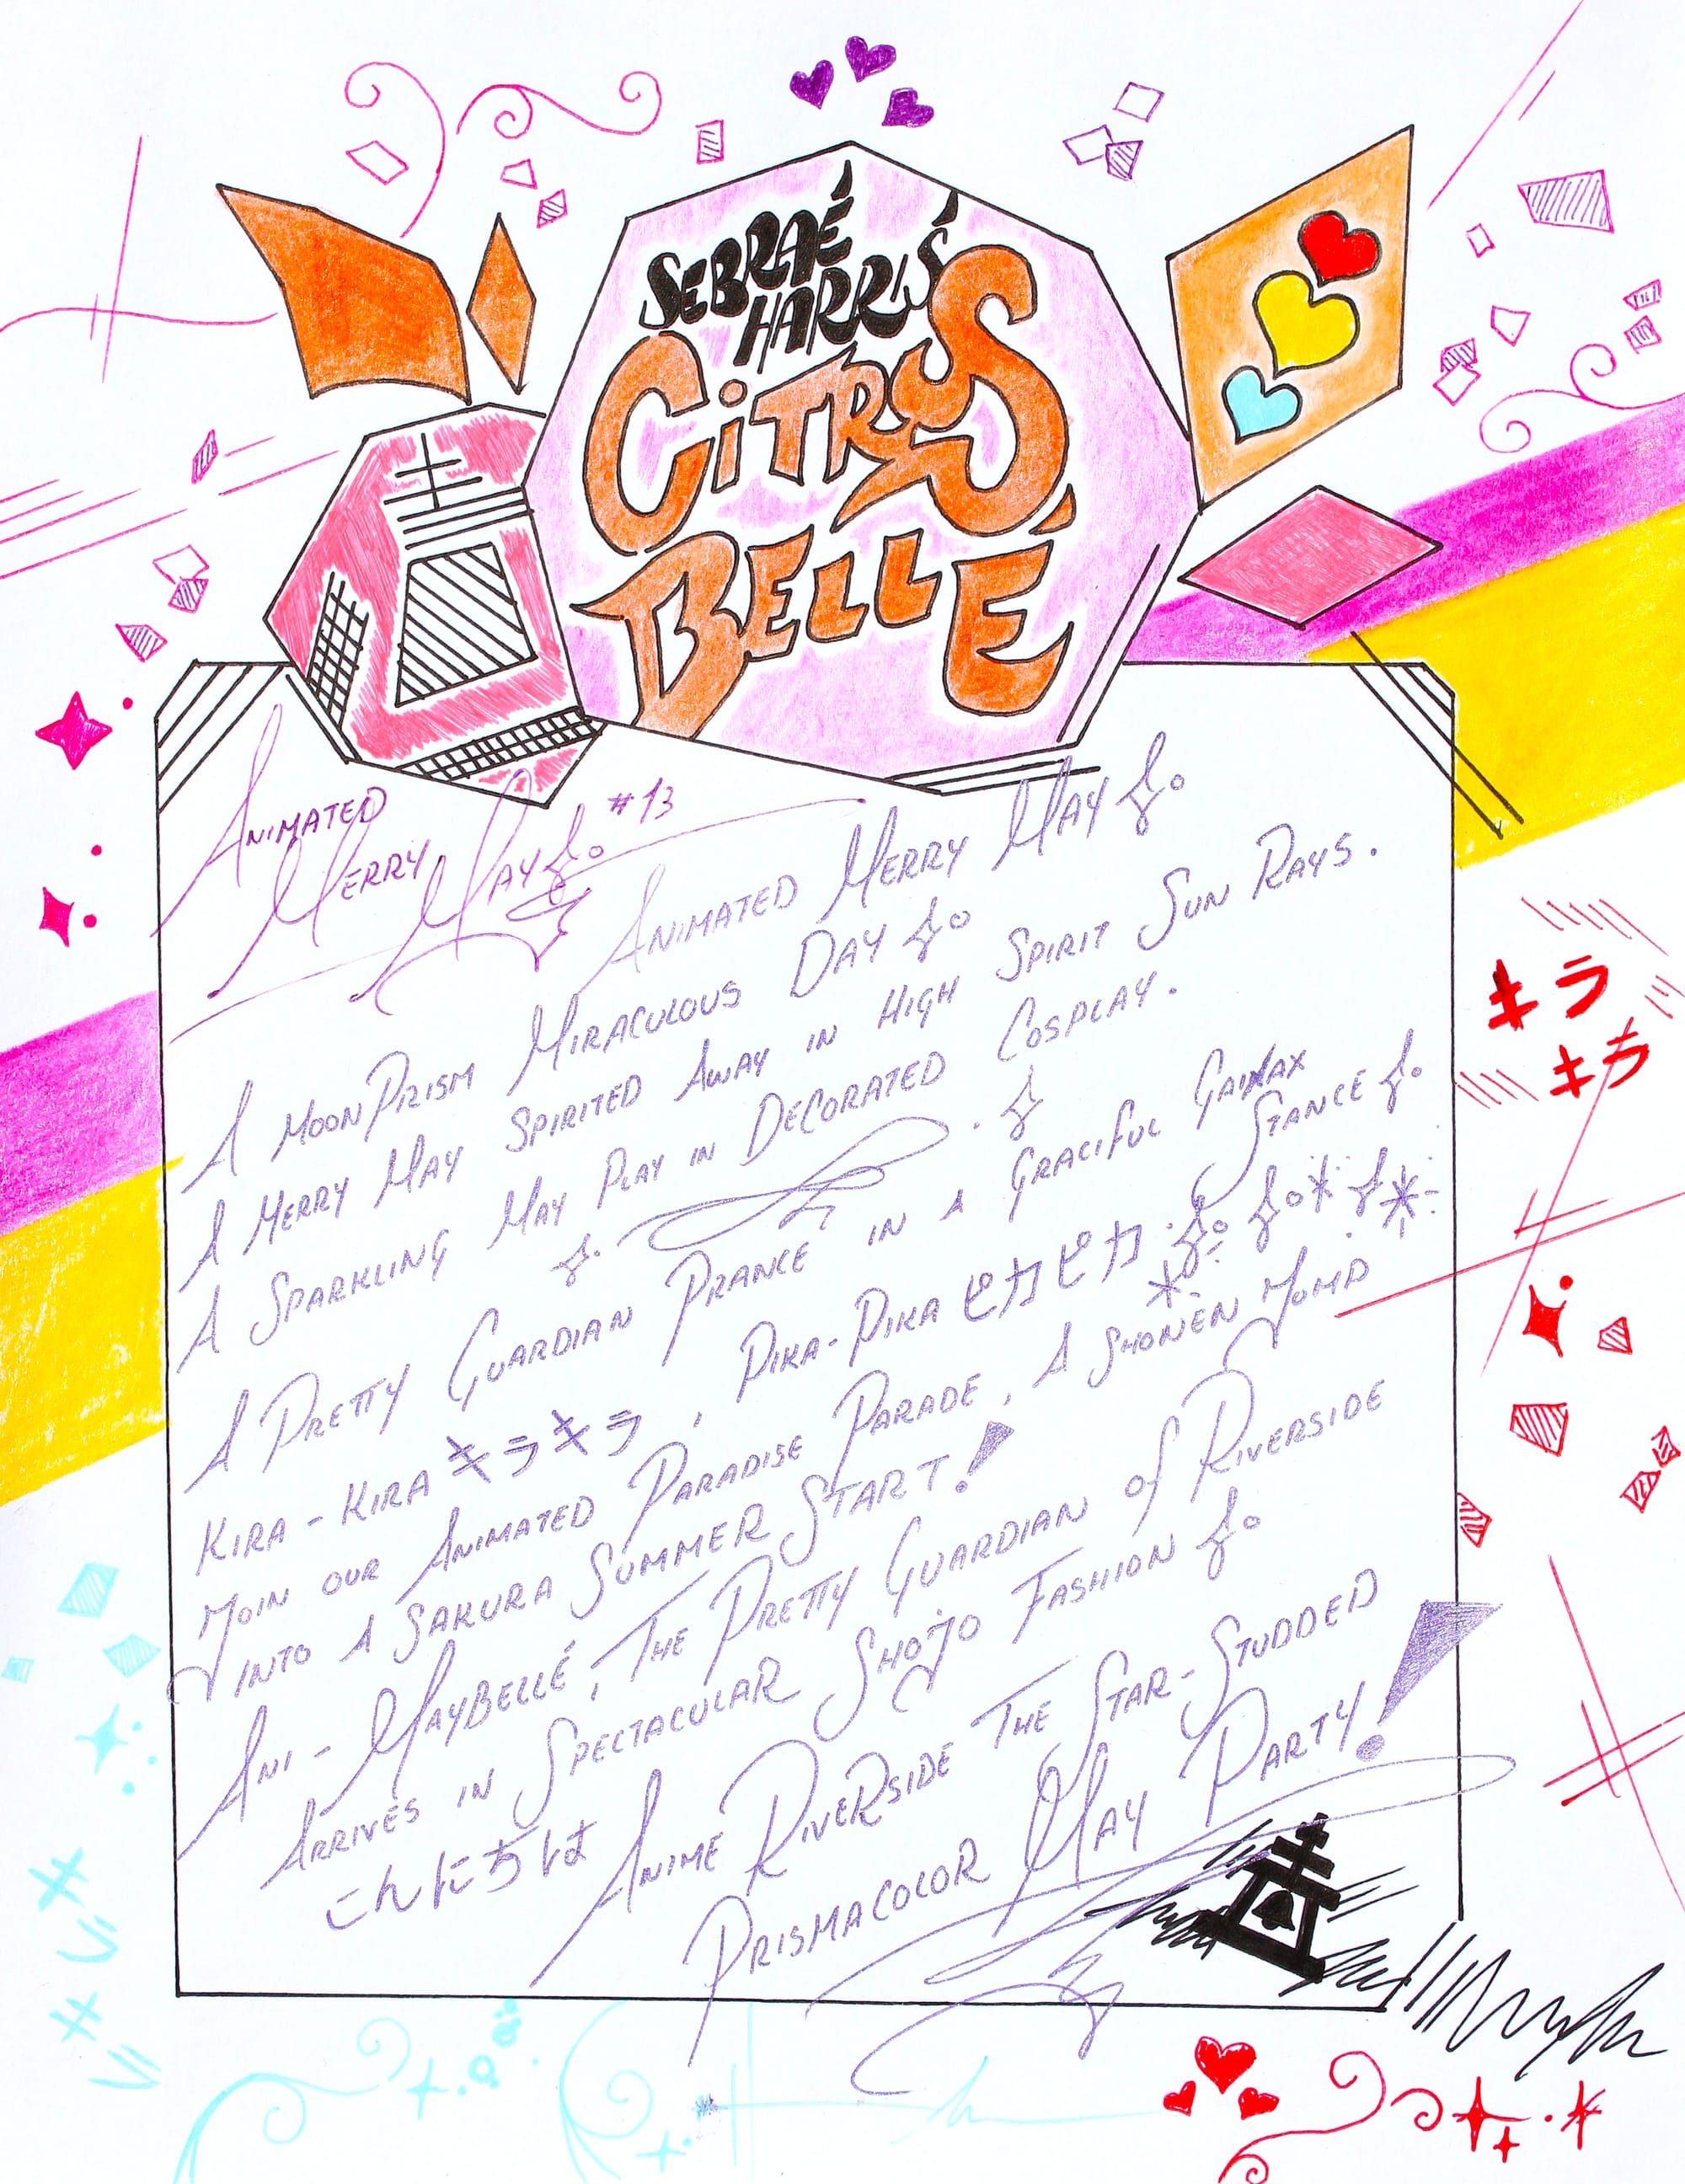 SEBRAÉ
HARRIS'
CITRUS
BELLÉ
ANIMATED
MERRY MAY #13
ANIMATED MERRY MAY
A MOONPRISM MIRACULOUS DAY
A MERRY MAY SPIRITED AWAY IN HIGH SPIRIT SUN RAYS.
A SPARKLING MAY PLAY IN DECORATED COSPLAY.
A PRETTY GUARDIAN PRANCE IN A GRACIFUL GAINAX
STANCE
KIRA-KIRA キラキラ, PIKA-PIKA ピカピカ
JOIN OUR ANIMATED PARADISE PARADE, A SHONEN JUMP
INTO A SAKURA SUMMER START!
ANI-MAYBELLÉ, THE PRETTY GUARDIAN of RIVERSIDE
ARRIVES IN SPECTACULAR SHOJO FASHION
こんにちは ANIME RIVERSIDE THE STAR-STUDDED
PRISMACOLOR MAY PARTY!
キラ
キラ
キラ
キラ